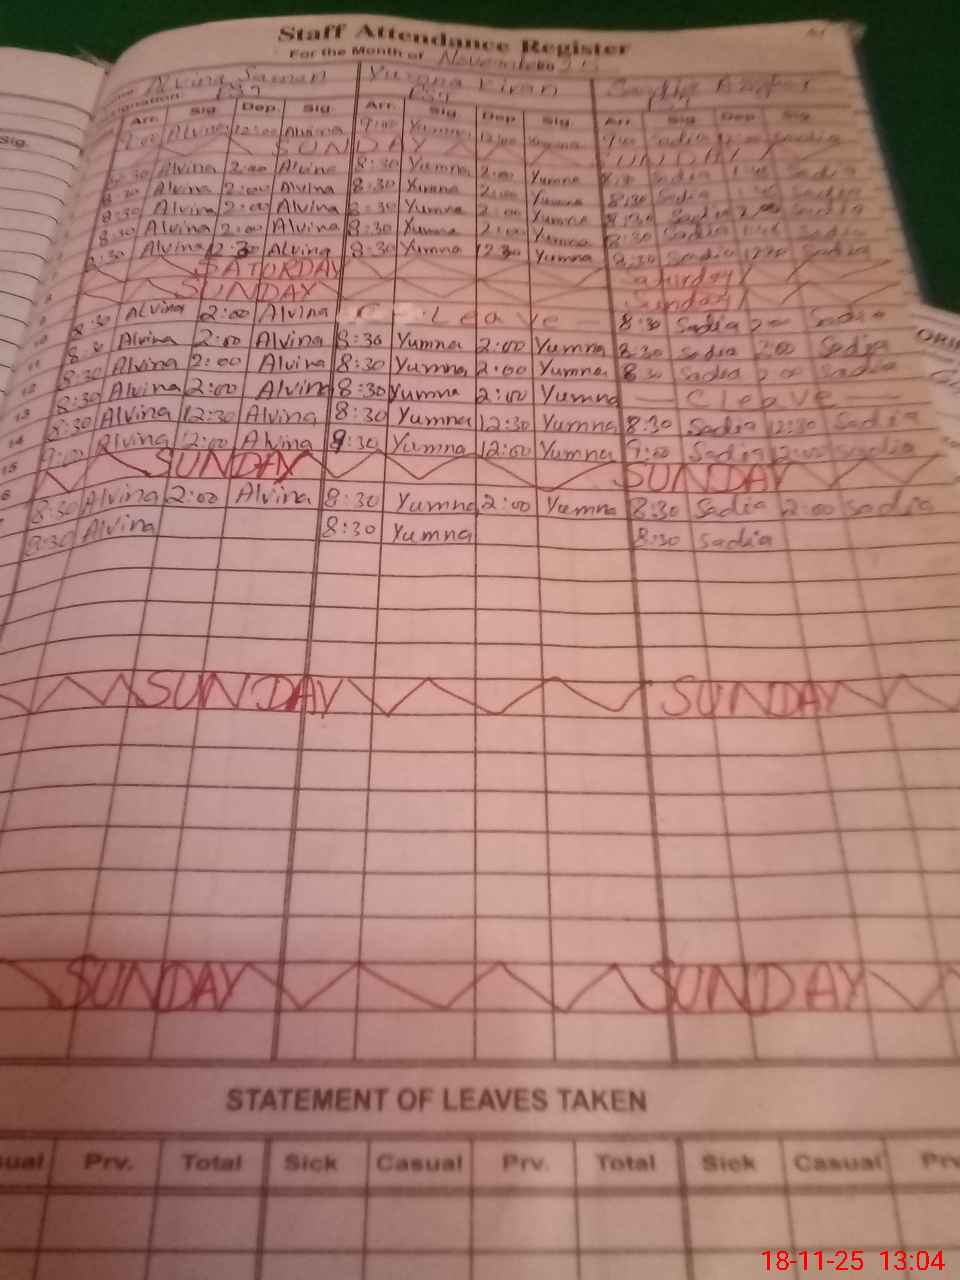 Staff Attendance Register
For the Month of November
Alvina Yumna Kiran
Arr. Sig. Dep. Sig. Arr. Sig. Dep. Sig. Arr. Sig. Dep. Sig.
Sig.
9:00 Alvina 12:00 Alvina 9:00 Yumna 12:00 Yumna 9:00 Sadia 12:00 Sadia
SUNDAY SUNDAY
8:30 Alvina 2:00 Alvina 8:30 Yumna 2:00 Yumna Sadia Sadia
8:30 Alvina 2:00 Alvina 8:30 Yumna 2:00 Yumna 8:30 Sadia Sadia
8:30 Alvina 2:00 Alvina 8:30 Yumna 2:00 Yumna 8:30 Sadia 2:00 Sadia
8:30 Alvina 2:00 Alvina 8:30 Yumna 2:00 Yumna 8:30 Sadia Sadia
8:30 Alvina 12:30 Alvina 8:30 Yumna 12:30 Yumna 8:30 Sadia 12:30 Sadia
SATORDAY Saturday
SUNDAY Sunday
8:30 Alvina 2:00 Alvina C - Leave - 8:30 Sadia 2:00 Sadia
10 8:30 Alvina 2:00 Alvina 8:30 Yumna 2:00 Yumna 8:30 Sadia 2:00 Sadia
11 8:30 Alvina 2:00 Alvina 8:30 Yumna 2:00 Yumna 8:30 Sadia 2:00 Sadia
12 8:30 Alvina 2:00 Alvina 8:30 Yumna 2:00 Yumna — C leave —
13 8:30 Alvina 12:30 Alvina 8:30 Yumna 12:30 Yumna 8:30 Sadia 12:30 Sadia
14 9:00 Alvina 12:00 Alvina 9:30 Yumna 12:00 Yumna 9:00 Sadia 12:00 Sadia
15 SUNDAY SUNDAY
6 8:30 Alvina 2:00 Alvina 8:30 Yumna 2:00 Yumna 8:30 Sadia 2:00 Sadia
8:30 Alvina 8:30 Yumna 8:30 Sadia
SUNDAY SUNDAY
SUNDAY SUNDAY
STATEMENT OF LEAVES TAKEN
sual Prv. Total Sick Casual Prv. Total Sick Casual Prv
18-11-25 13:04